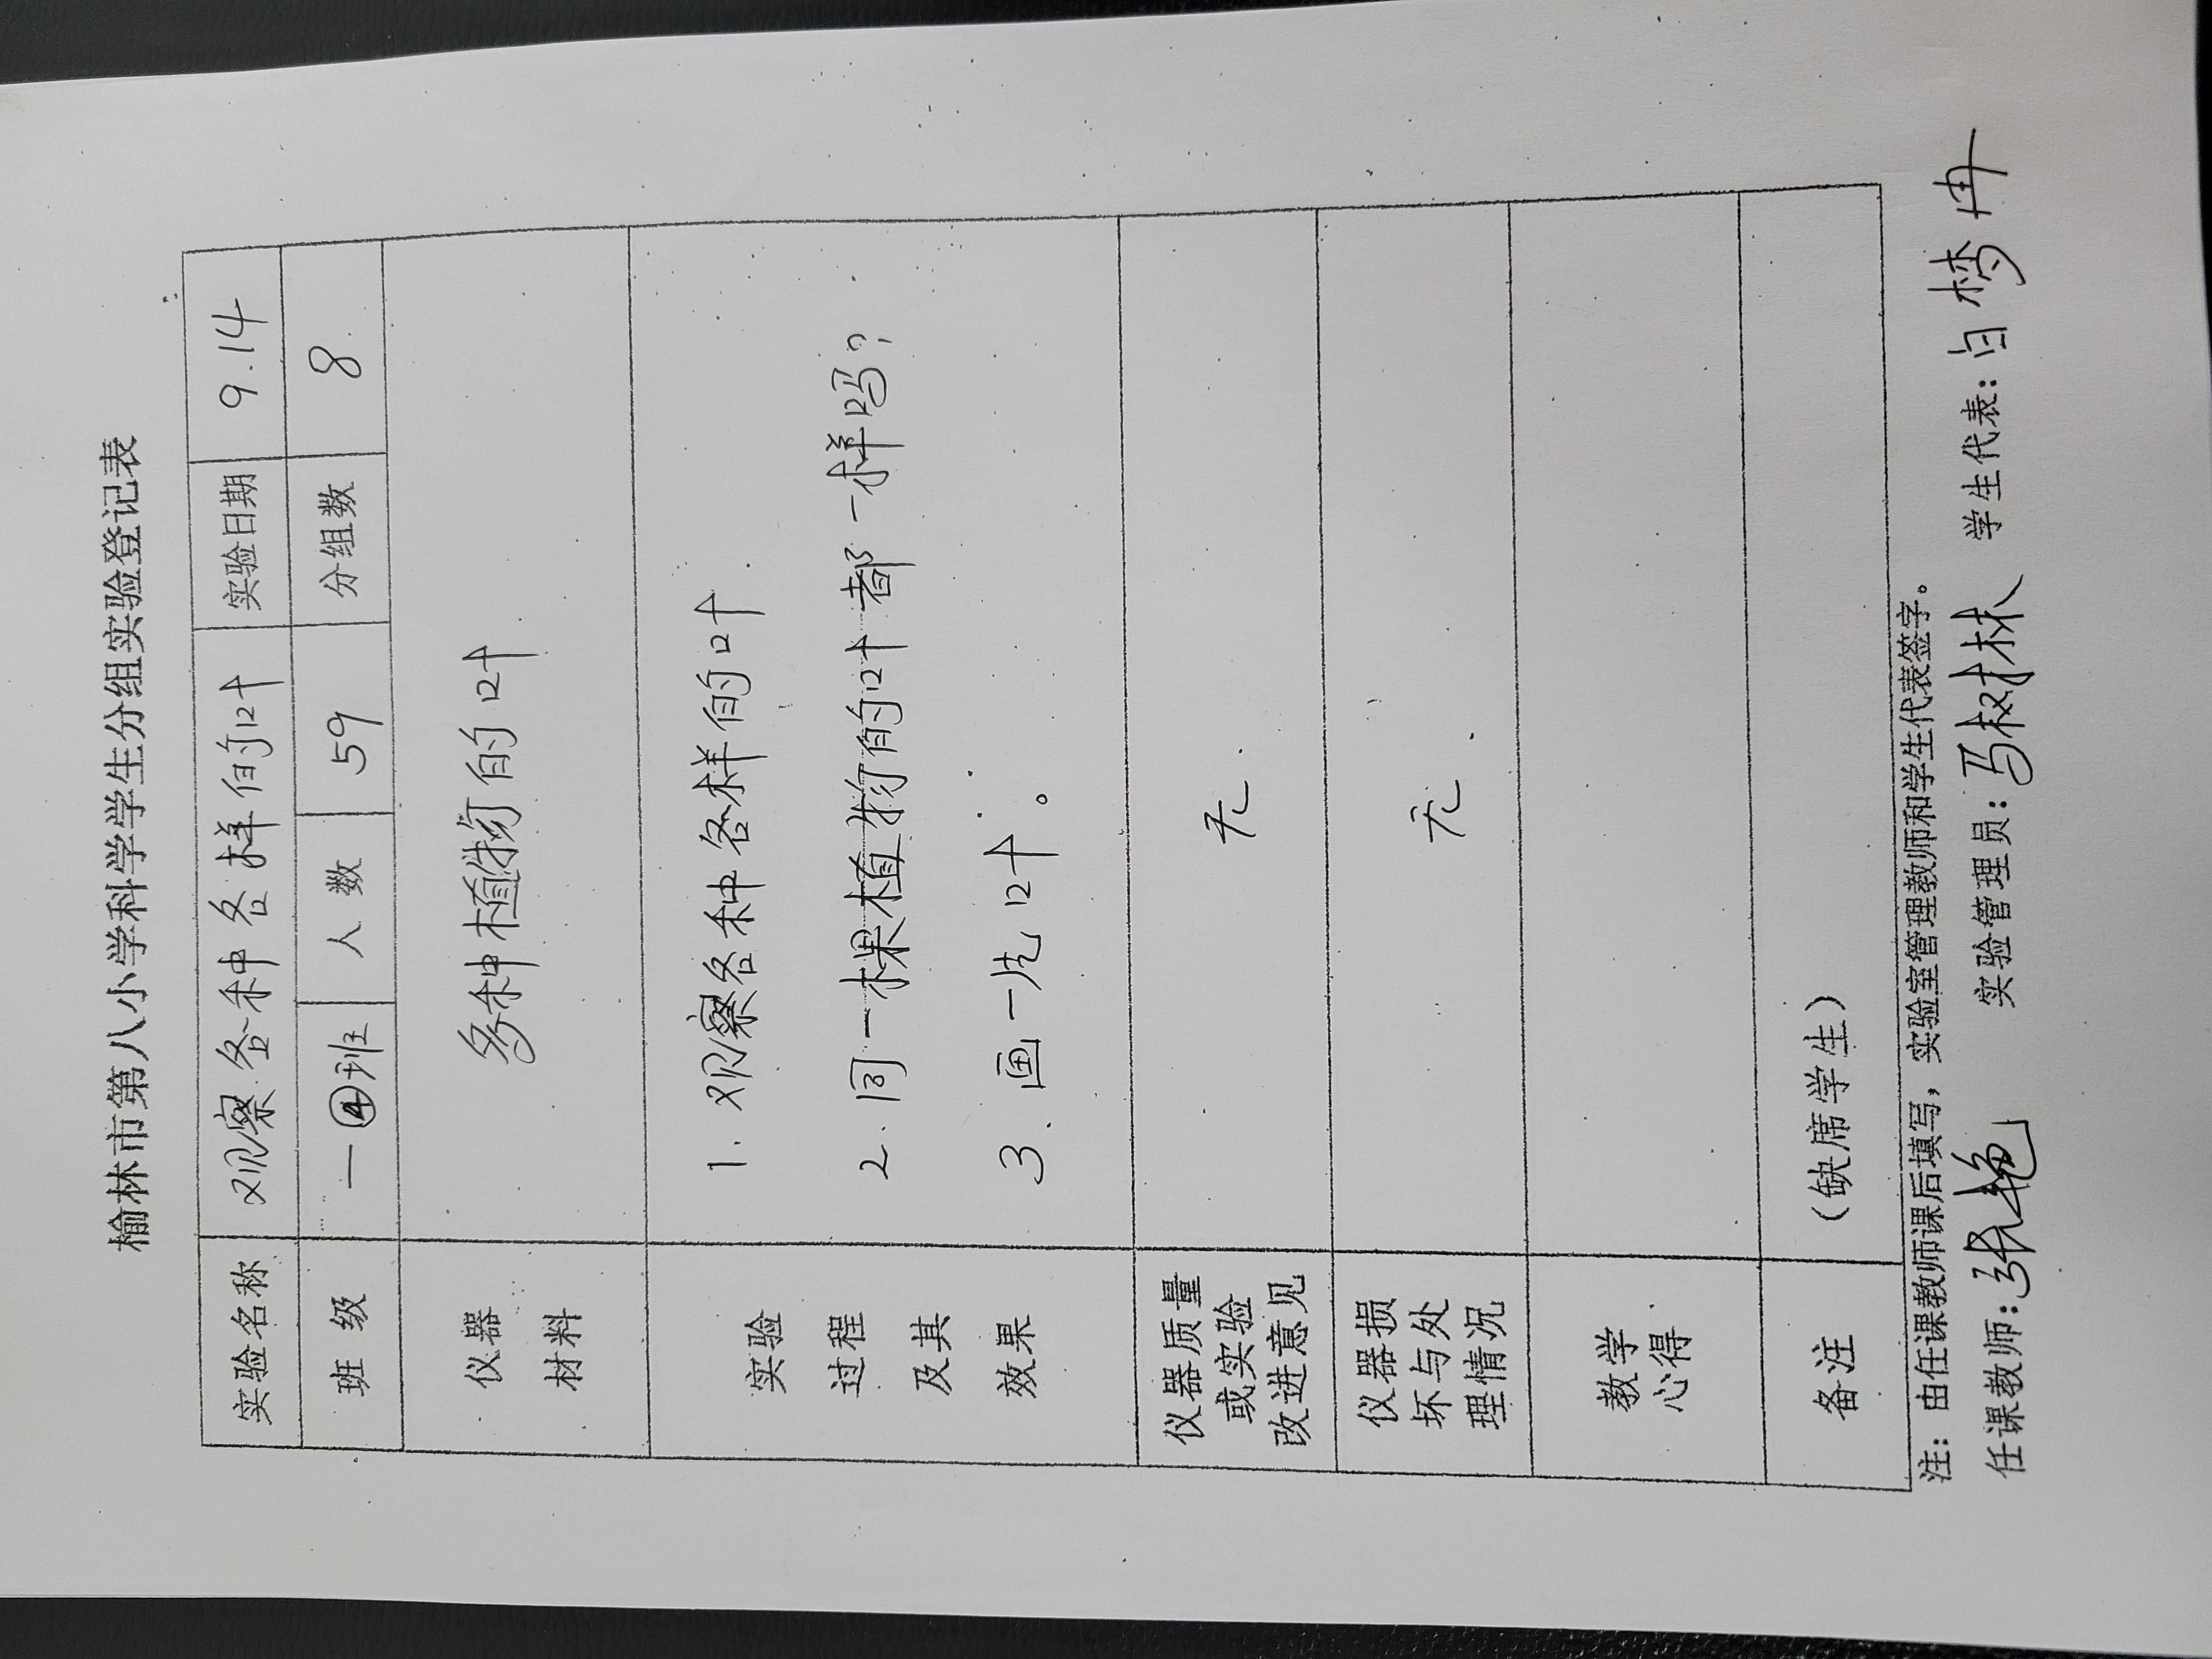 榆林市第八小学科学学生分组实验登记表
实验名称 观察各种各样的叶 实验日期 9.14
班 级 一④班 人 数 59 分组数 8
仪器
材料
多种植物的叶
实验
过程
及其
效果
1. 观察各种各样的叶.
2. 同一棵植物的叶都一样吗?
3. 画一片叶。
仪器质量
或实验
改进意见
无.
仪器损
坏与处
理情况
无.
教学
心得
备注
(缺席学生)
注: 由任课教师课后填写, 实验室管理教师和学生代表签字。
任课教师: 张艳 实验管理员: 马树林 学生代表: 白梦冉